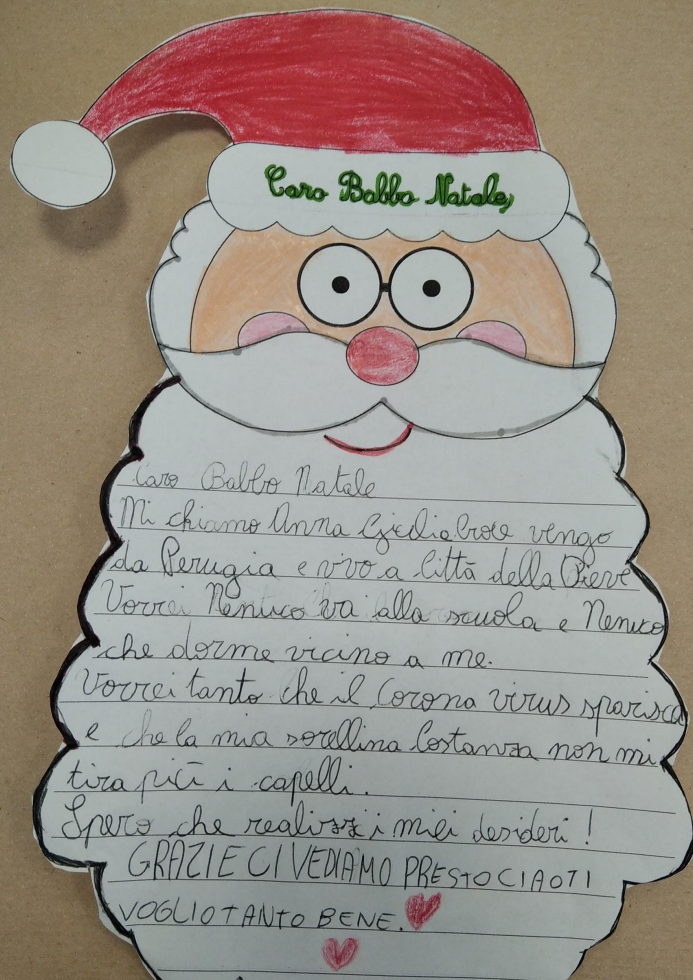 Caro Babbo Natale,
Caro Babbo Natale
Mi chiamo Anna Giulia vengo
da Perugia e vivo a Città della Pieve
Vorrei Nenuco va alla scuola e Nenuco
che dorme vicino a me.
Vorrei tanto che il Corona virus sparisca
e che la mia sorellina Costanza non mi
tira più i capelli.
Spero che realizzi i miei desideri!
GRAZIE CI VEDIAMO PRESTO CIAO TI
VOGLIO TANTO BENE.